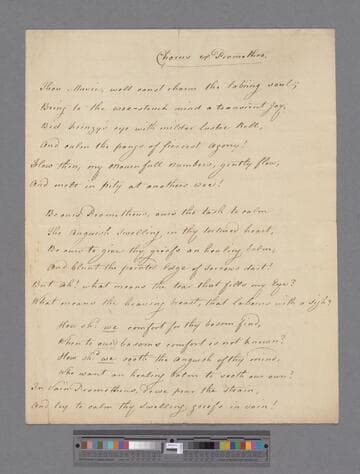 Chorus ex Prometheo.
Thou Music, well canst charm the lab'ring soul;
Bring to the woe-struck mind a transient joy,
Bid frenzy's eye with milder lustre Roll,
And calm the pangs of fiercest agony!
Flow then, my Mournfull Numbers, gently flow,
And melt in pity at anothers woe!
Be ours Prometheus, ours the task to calm
The Anguish Swelling in thy tortured heart,
Be ours to give thy griefs an healing balm,
And blunt the pointed Edge of Sorrows dart!
But Ah! what means the tear that fills my Eye?
What means the heaving breast, that labours with a sigh?
How shd. we comfort for thy bosom find,
When to our bosoms comfort is not known?
How shd. we sooth the Anguish of thy mind,
Who want an healing balm to sooth our own?
In Vain Prometheus, do we pour the Strain,
And try to calm thy Swelling griefs in Vain!